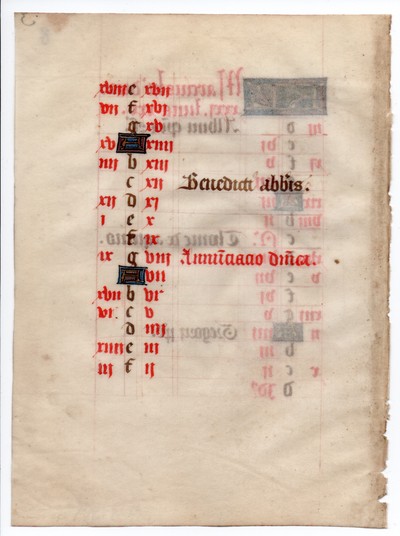 xviii e xvii
vii f xvi
g xv
xv A xiiii
iiii b xiii
c xii Benedicti abbis.
xii d xi
i e x
f ix
ix g viii Annūciacio dn̄ica.
A vii
xvii b vi
vi. c v
d iiii
xiiii e iii
iii f ii